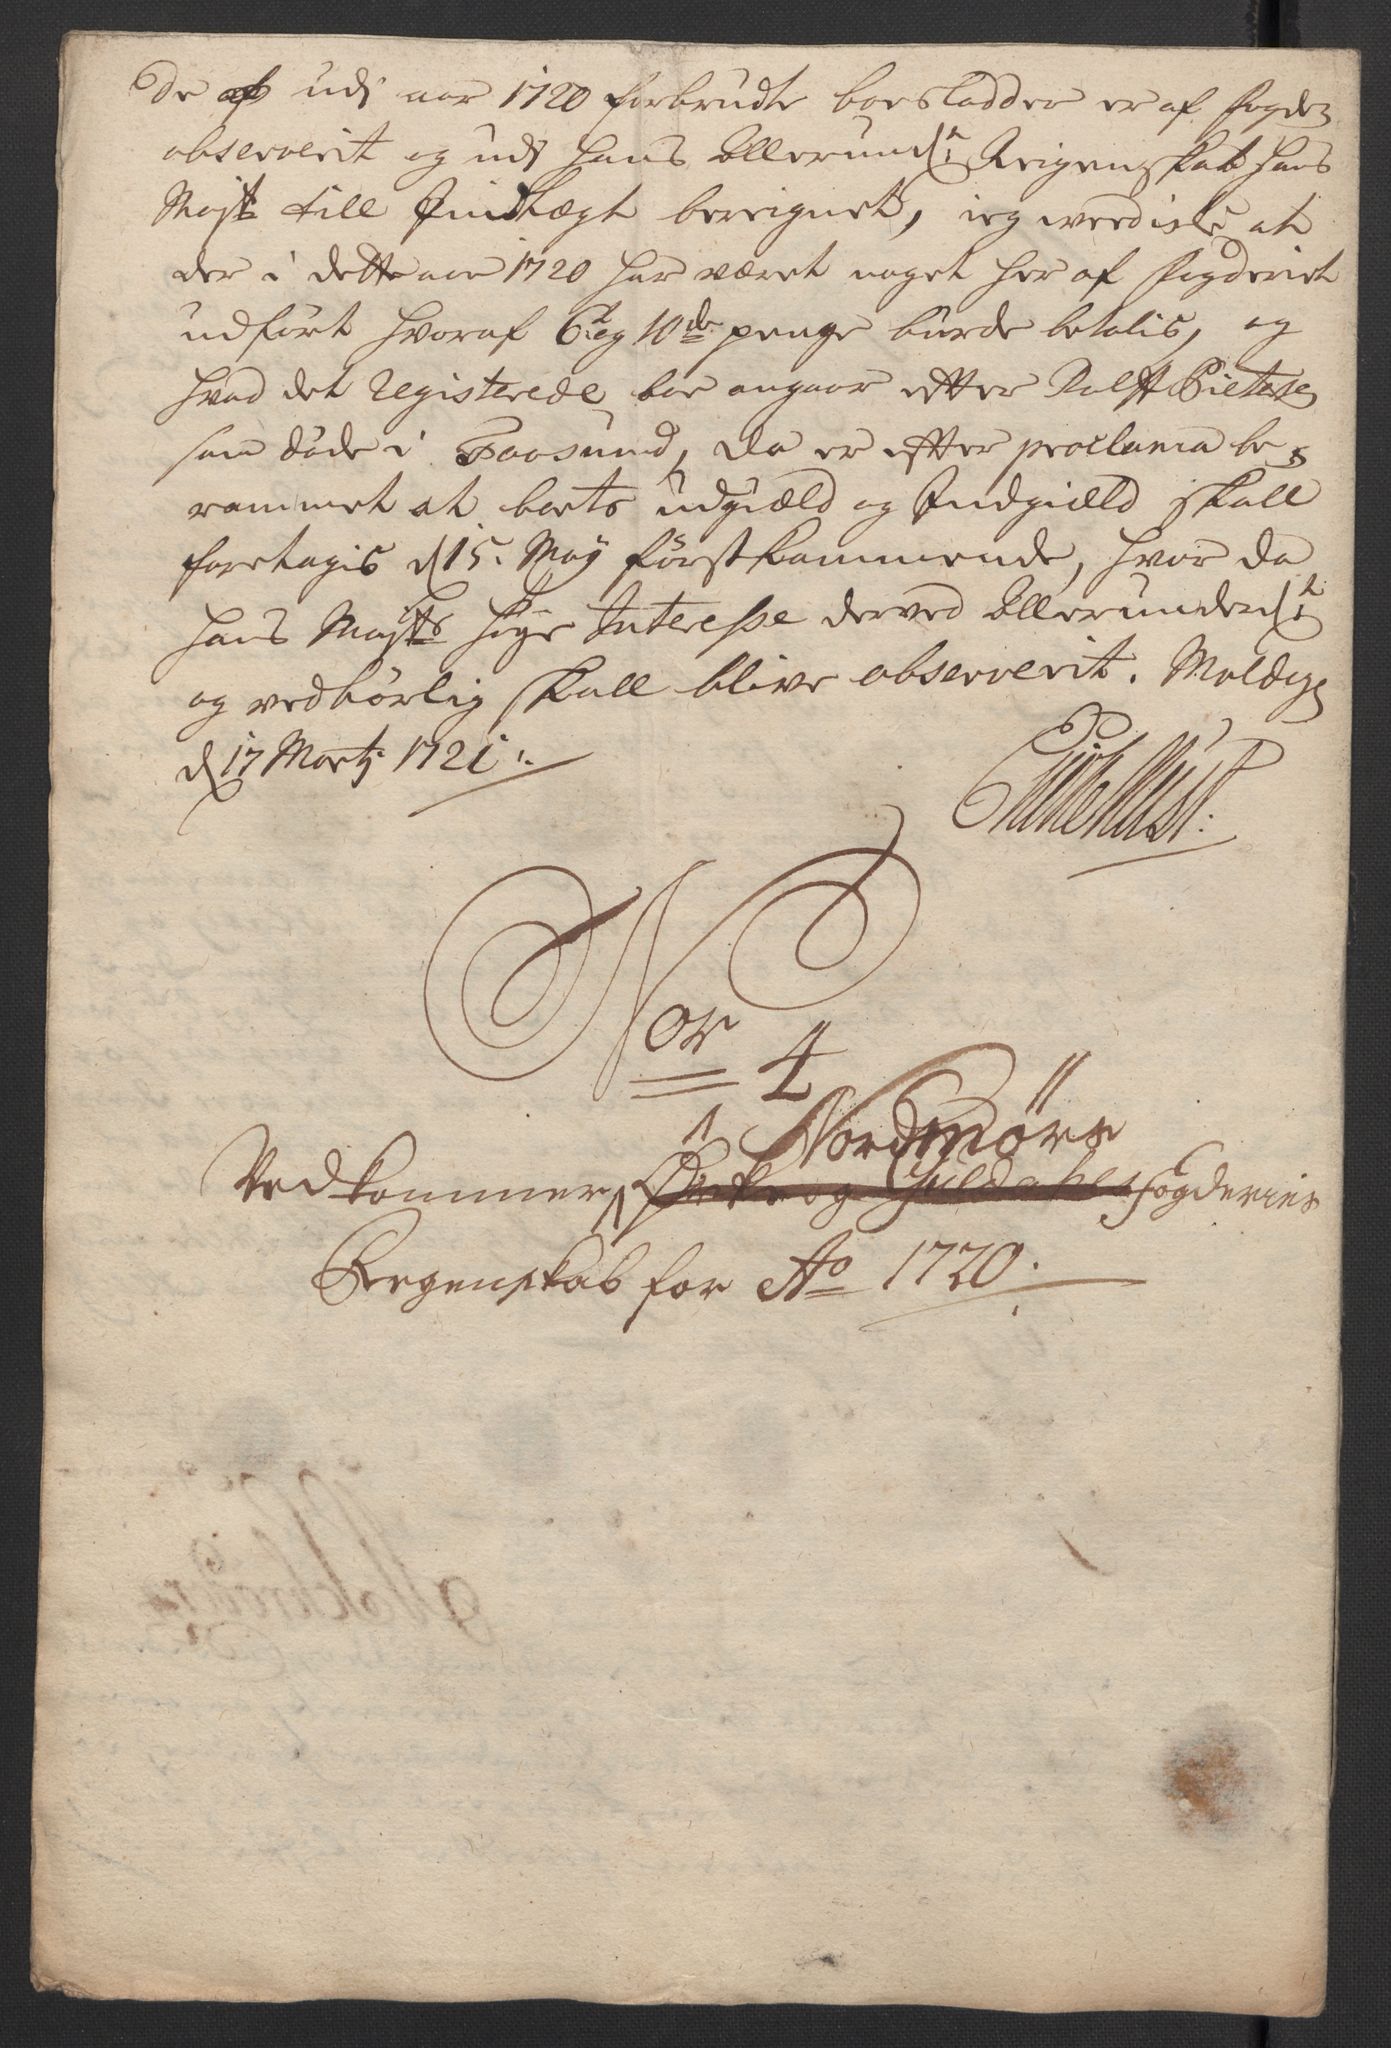 De udj aar 1720 forbrudte boeslodder er af fogden
observerit og udj hans allerund: Reigenskab hans
Mayts till Indtægt bereignet, ieg veed icke at
der i dette aar 1720 har været noget her af fogderiet
udført hvoraf 6te og 10de penge burde betalis, og
hvad det Registerede boe angaar efter Rolf
som døde i, da er efter proclama be-
rammet at boets udgield og Indgield skall
foretagis d 15. Maÿ førstkommende, hvor da
hans Mayts høye Interesse derved allerunder:
og vedbørlig skall blive observerit. Molde
d 17 Martj 1721:

Nor 4
Nordmøre
Vedkommer Orke og Guldahls fogderies
Regenskab for Ao 1720.